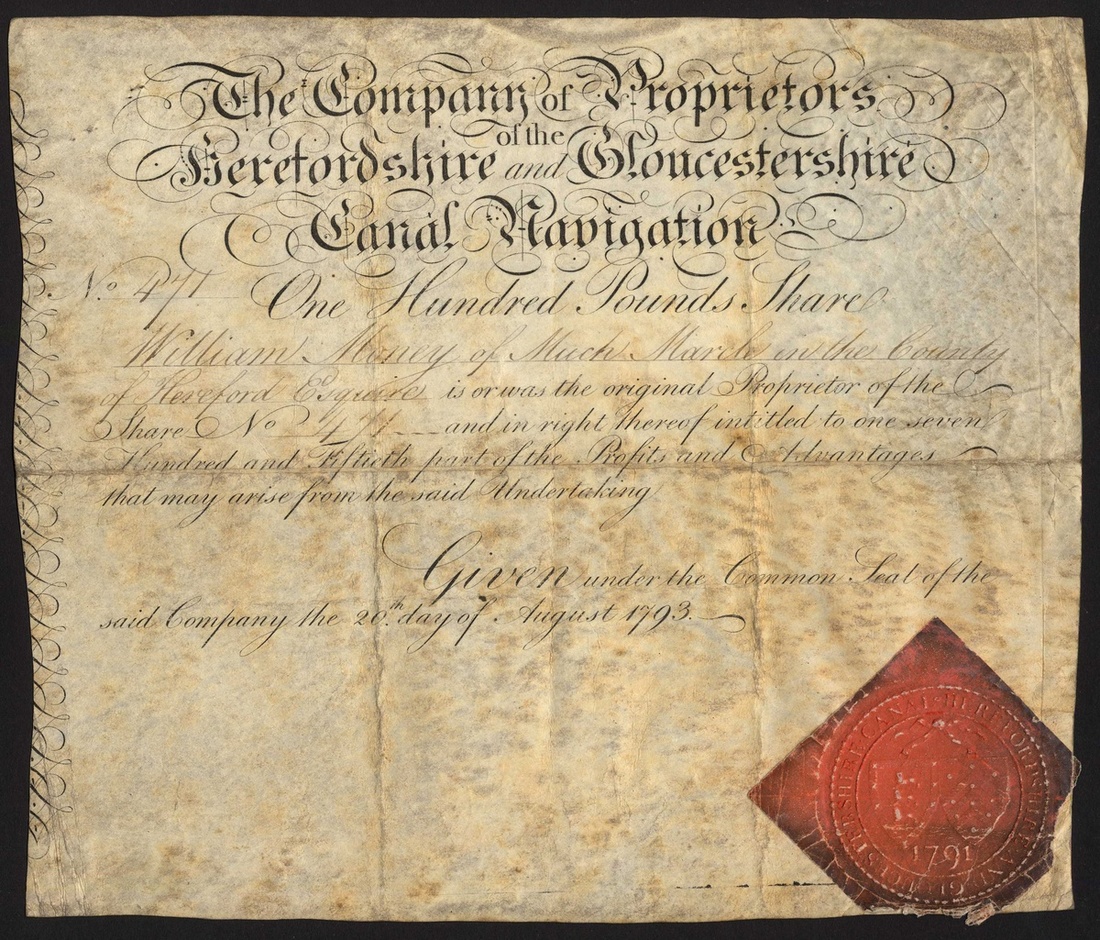 The Company of Proprietors
of the
Herefordshire and Gloucestershire
Canal Navigation
No. 471 One Hundred Pounds Share
William Money of Much Marcle in the County
of Hereford Esquire is or was the original Proprietor of the
Share No 471 and in right thereof intitled to one seven
Hundred and Fiftieth part of the Profits and Advantages
that may arise from the said Undertaking
Given under the Common Seal of the
said Company the 20th. day of August 1793.
HEREFORDSHIRE AND GLOUCESTERSHIRE CANAL
1791